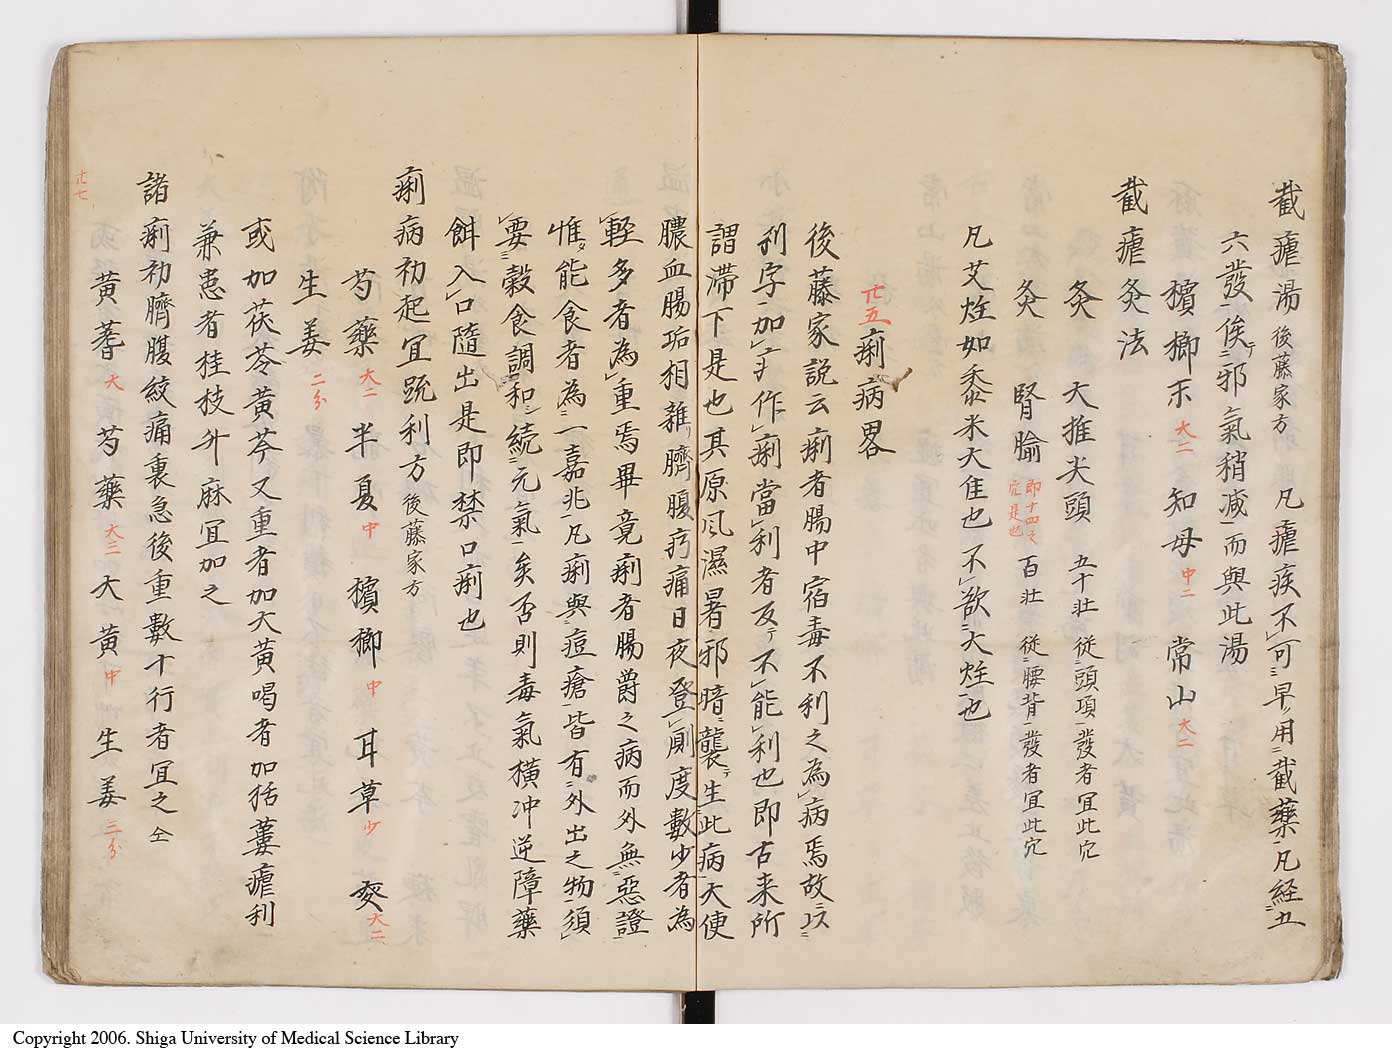 截瘧湯 後藤家方 凡瘧疾不可早用截藥凡経五
六發俟邪氣稍减而與此湯
檳榔 大二 知母 中二 常山 大二
截瘧灸法
灸 大推尖頭 五十壮 従頭項發者宜此穴
灸 腎腧 即十四之穴是也 百壮 従腰背發者宜此穴
凡艾炷如黍米大隹也不欲大炷也
廿五 痢病畧
後藤家説云痢者腸中宿毒不利之為病焉故以
利字加疒作痢當利者反不能利也即古来所
謂滞下是也其原風濕暑邪暗襲生此病大便
膿血腸垢相雜臍腹㽱痛日夜登厠度數少者為
輕多者為重焉畢竟痢者腸爵之病而外無惡證
惟能食者為一嘉兆凡痢與痘瘡皆有外出之物須
要穀食調和続元氣矣否則毒氣橫冲逆障藥
餌入口隨出是即禁口痢也
痢病初起宜疏利方 後藤家方
芍藥 大二 半夏 中 檳榔 中 耳草 少
生姜 二分
或加茯苓黄芩又重者加大黄喝者加括蔞瘧利
兼患者桂枝升麻宜加之
諸痢初臍腹絞痛裏急後重數十行者宜之 仝
黄耆 大 芍藥 大三 大黄 中 生姜 三分
廿七
Copyright 2006. Shiga University of Medical Science Library